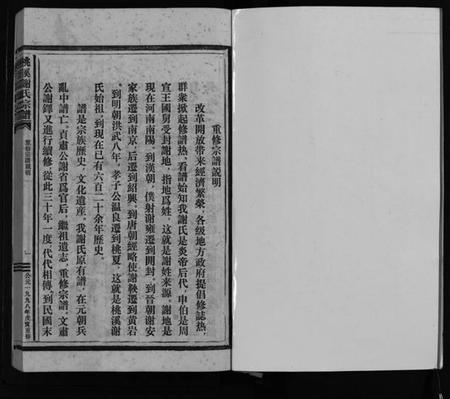 重修宗譜説明
改革開放带来經濟繁榮、各级地方政府提倡修誌熱，
群衆掀起修譜热、看譜始知我謝氏是炎帝后代，申伯是周
宣王國舅受封謝地，指地爲姓，这就是謝姓来源。謝地是
現在河南南陽，到漢朝，僕射謝雍遷到開封，到晉朝謝安
家族遷到南京，后遷到紹興，到唐朝經略使謝
遷到黄岩
，到明朝洪武八年，孝子公温良遷到桃夏，这就是桃溪謝
氏始祖，到現在已有六百二十余年歷史。
譜是宗族歷史，文化遺産。我謝氏原有譜，在元朝兵
亂中譜亡，貞肅公謝省爲官后，繼祖遺志，重修宗譜，文肅
公謝鐸又進行續修，從此三十年一度，代代相傳，到民國末
桃溪謝氏宗譜
重修宗譜説明
一
公元一九九八年戊寅重修